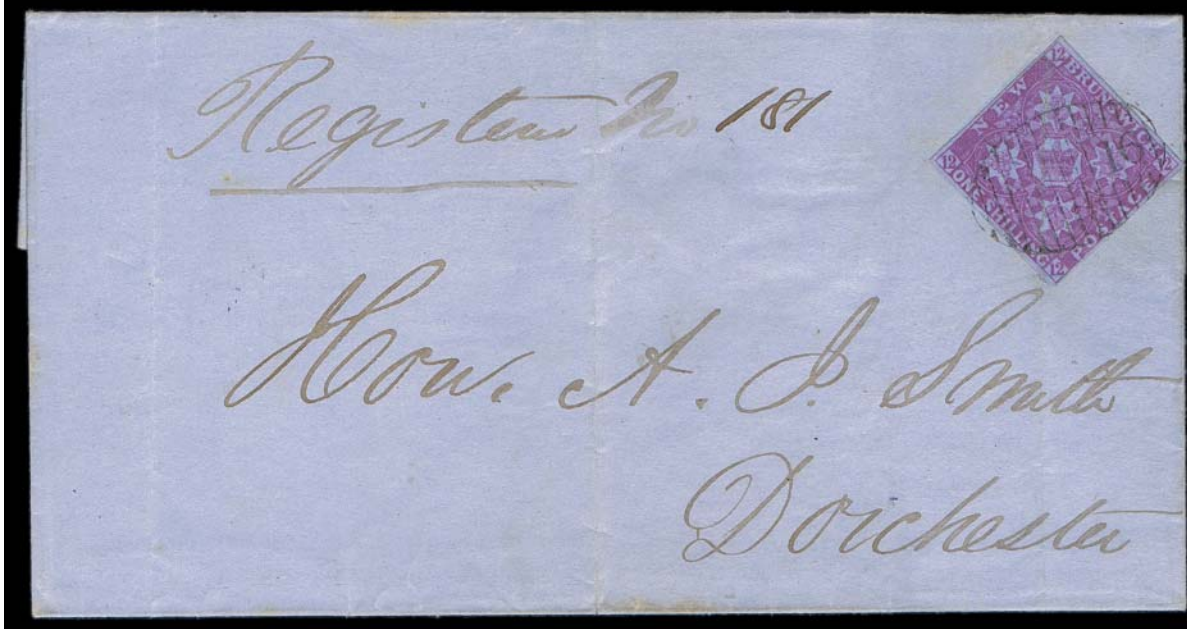 Register No 181
12 NEW BRUNSWICK 12
ONE SHILLING 12 POSTAGE
Hon. A. J. Smith
Dorchester